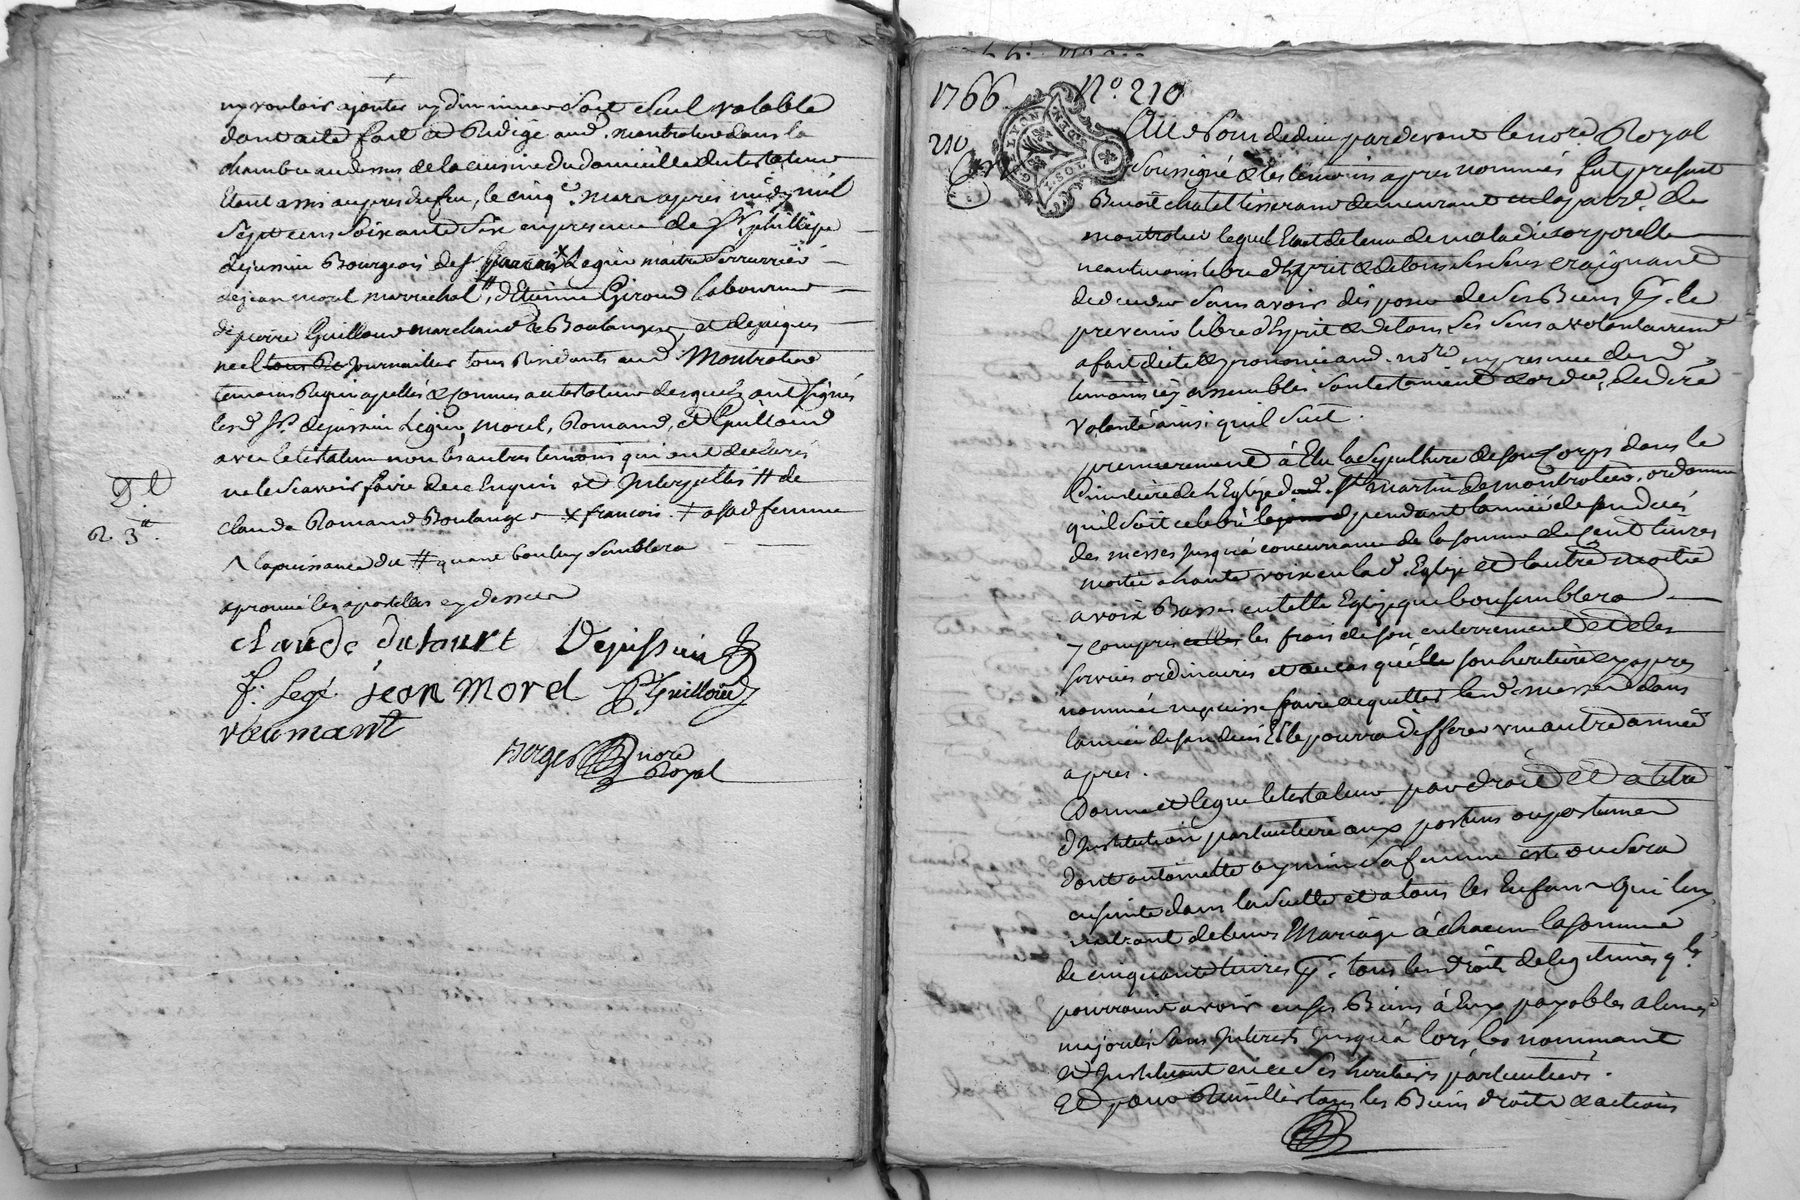 ny vouloir ajouter ny diminuer soit seul valable
dont acte fait et Redigé aud. montrotier dans la
chambre au dessus de la cuisine du domicille du testateur
Etant assis aupres du feu, le cinq mars apres midy mil
Sept cens soixante six en presence de Sr. phillipe
dejussieu Bourgeois de Sr Legier maitre Serrurier
de jean morel marrechal, d'Etienne Giroud Laboureur
de pierre Guilloud marchand Boulanger, et de jaques
neel journallier tous Residants aud. Montrotier
temoins Requis apellés & connus au testateur desquels ont signés
lesd. Srs. dejussieu Legier, Morel, Romand, et Guilloud
avec le testateur non les autres temoins qui ont declarés
ne le scavoir faire de ce Enquis et Interpellés # de
claude Romand Boulanger x francois. + a sad femme
la puissance du # quand bon luy semblera
aprouvé les apostilles cy dessus
claude dutourt Dejussieu
f. Legé. jean Morel P Guilloud
roumant
Berger nore
Royal
1766 No. 210
210
GEN. LYON
Au Nom de dieu par devant le nore. Royal
Soussigné & les témoins apres nommés fut present
Benoît chatel tisserand demeurant en la parr. de
montrotier lequel Etant detenu de maladie corporelle
neantmoins libre d'Esprit & de tous ses sens craignant
de deceder sans avoir disposé de ses Biens
prevenir libre d'Esprit & de tous ses sens a volontairement
a fait dicté & prononcé aud. nore en presence desd.
temoins icy assemblés son testament & ordce. de dere
Volonté ainsi qu'il suit.
premierement à Elu la Sepulture de son Corps dans le
Cimetière de l'Eglise dud. St Martin de montrotier, ordonne
qu'il soit celebré pendant l'année de son deces
des messes jusqu'a concurrance de la somme de cent livres
moitié a haute voix en lad. Eglise et l'autre moitié
a voix Basse en telle Eglise que bon semblera
y compris les frais de son enterrement et des
services ordinaires et au cas qu'elle son heritiere cy apres
nommée ne puisse faire acquitter lesd. messes dans
l'année de son deces Elle pourra differer une autre année
apres.
Donne et legue le testateur par droit et a titre
d'Institution particuliere aux postume ou postumes
dont antoinette aymin sa femme est ou sera
enceinte dans la suitte et a tous les Enfans qui luy
naitront de leur Mariage à chacun la somme
de cinquante livres pr. tous les droits de legitimes qls.
pourroient avoir en ses Biens à Eux payables a leurs
majorités sans Interests jusqu'à lors les nommant
et Instituant en ce ses heritiers particuliers.
Et pour Reuillir tous les Biens droits & actions